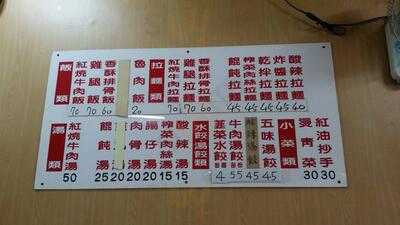 飯類
紅燒牛肉飯 70
雞腿飯 70
香酥排骨飯 60
魯肉飯 20
拉麵類
紅燒牛肉拉麵 70
雞腿拉麵 70
香酥排骨拉麵 60
餛飩拉麵 45
榨菜肉絲拉麵 45
乾拌拉麵 45
炸醬拉麵 45
酸辣拉麵 40
湯類
紅燒牛肉湯 50
餛飩湯 25
肉骨湯 20
腸仔湯 20
榨菜肉絲湯 15
酸辣湯 15
水餃湯餃類
韮菜水餃 4
牛肉湯餃 55
酸辣湯餃 45
五味湯餃 45
小菜類
燙青菜 30
紅油抄手 30